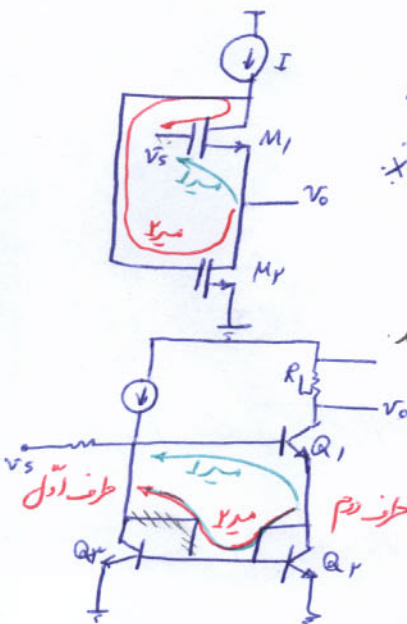 I
M۱
Vs
مسیر ۱
Vo
مسیر ۲
M۲
RL
Vo
Vs
Q۱
مسیر ۱
طرف اوّل
مسیر ۲
طرف دوم
Q۳
Q۲